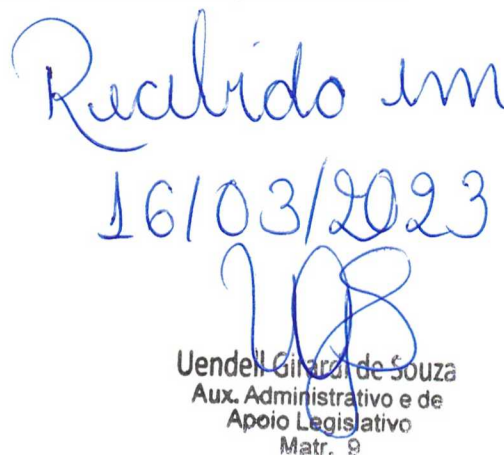 Recebido em
16/03/2023
Uendell Girardi de Souza
Aux. Administrativo e de
Apoio Legislativo
Matr. 9